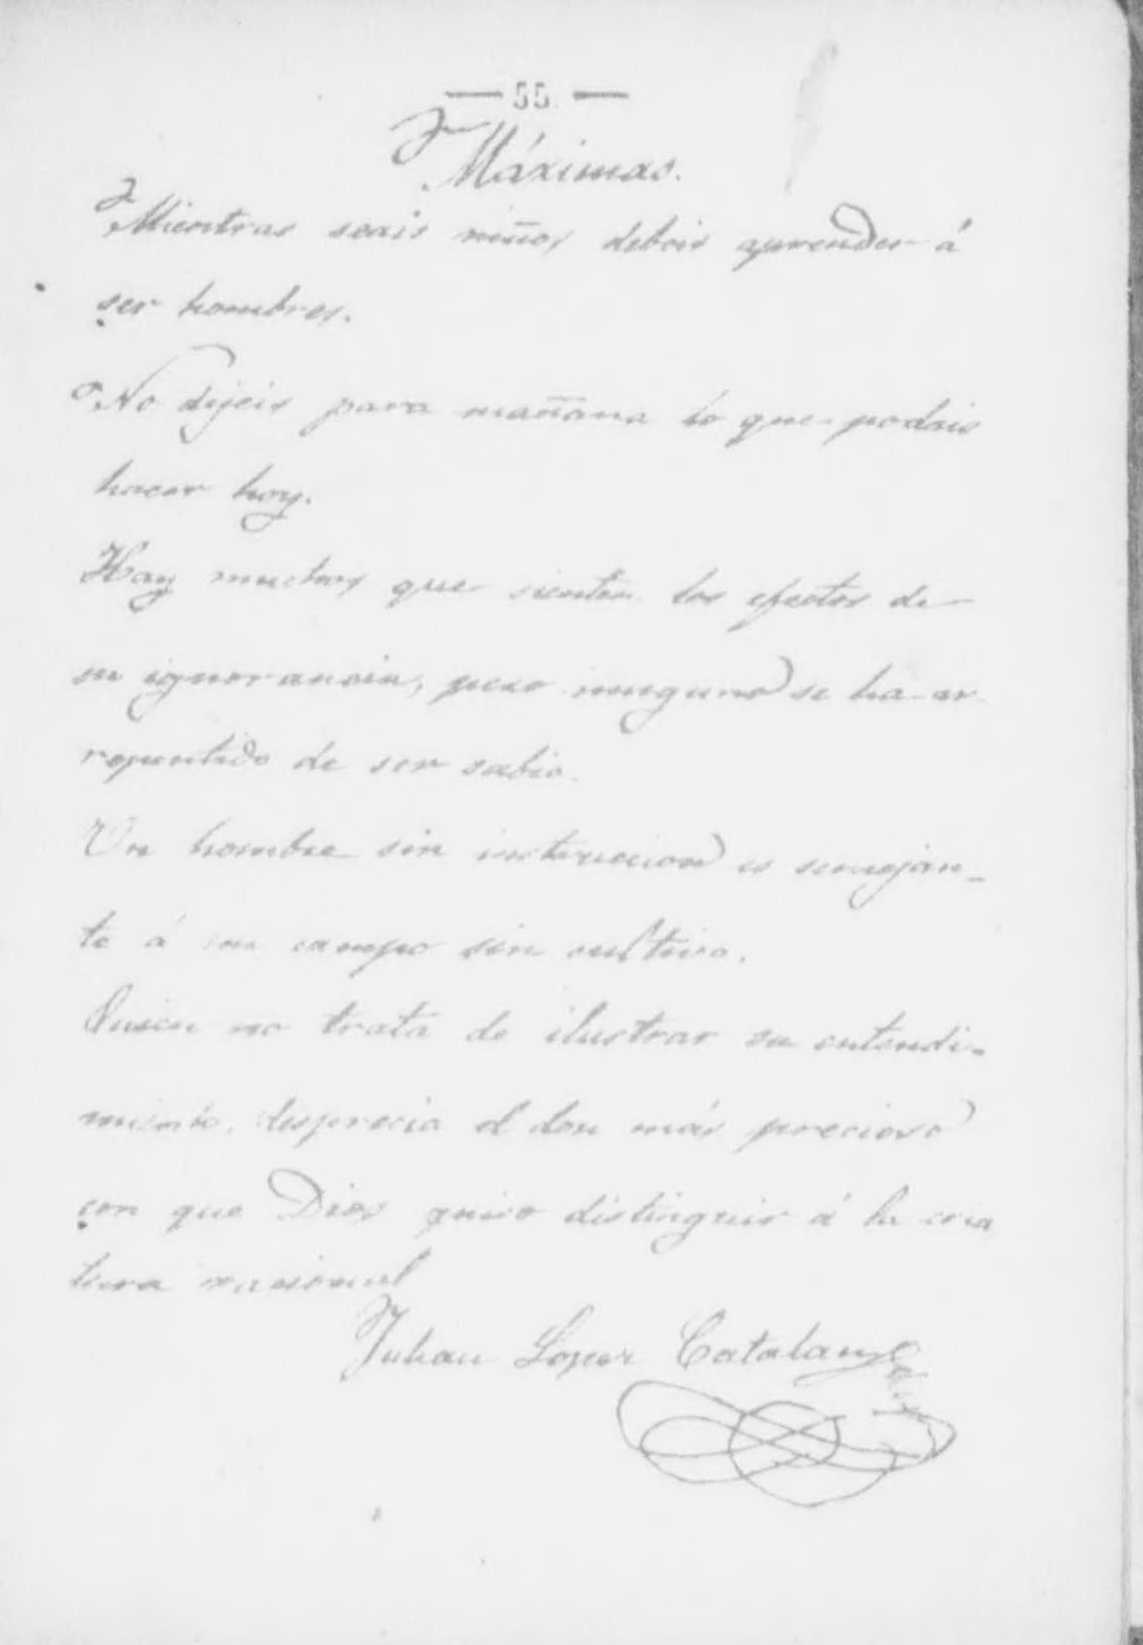 — 55. —
Máximas.
Mientras seais niños, debeis aprender á
ser hombres.
No dejeis para mañana lo que podais
hacer hoy.
Hay muchos que sienten los efectos de
su ignorancia, pero ninguno se ha ar
repentido de ser sabio.
Un hombre sin instruccion es semejan-
te á un campo sin cultivo.
Quien no trata de ilustrar su entendi-
miento, desprecia el don más precioso
con que Dios quiso distinguir á la cria
tura racional
Julian Lopez Catalan